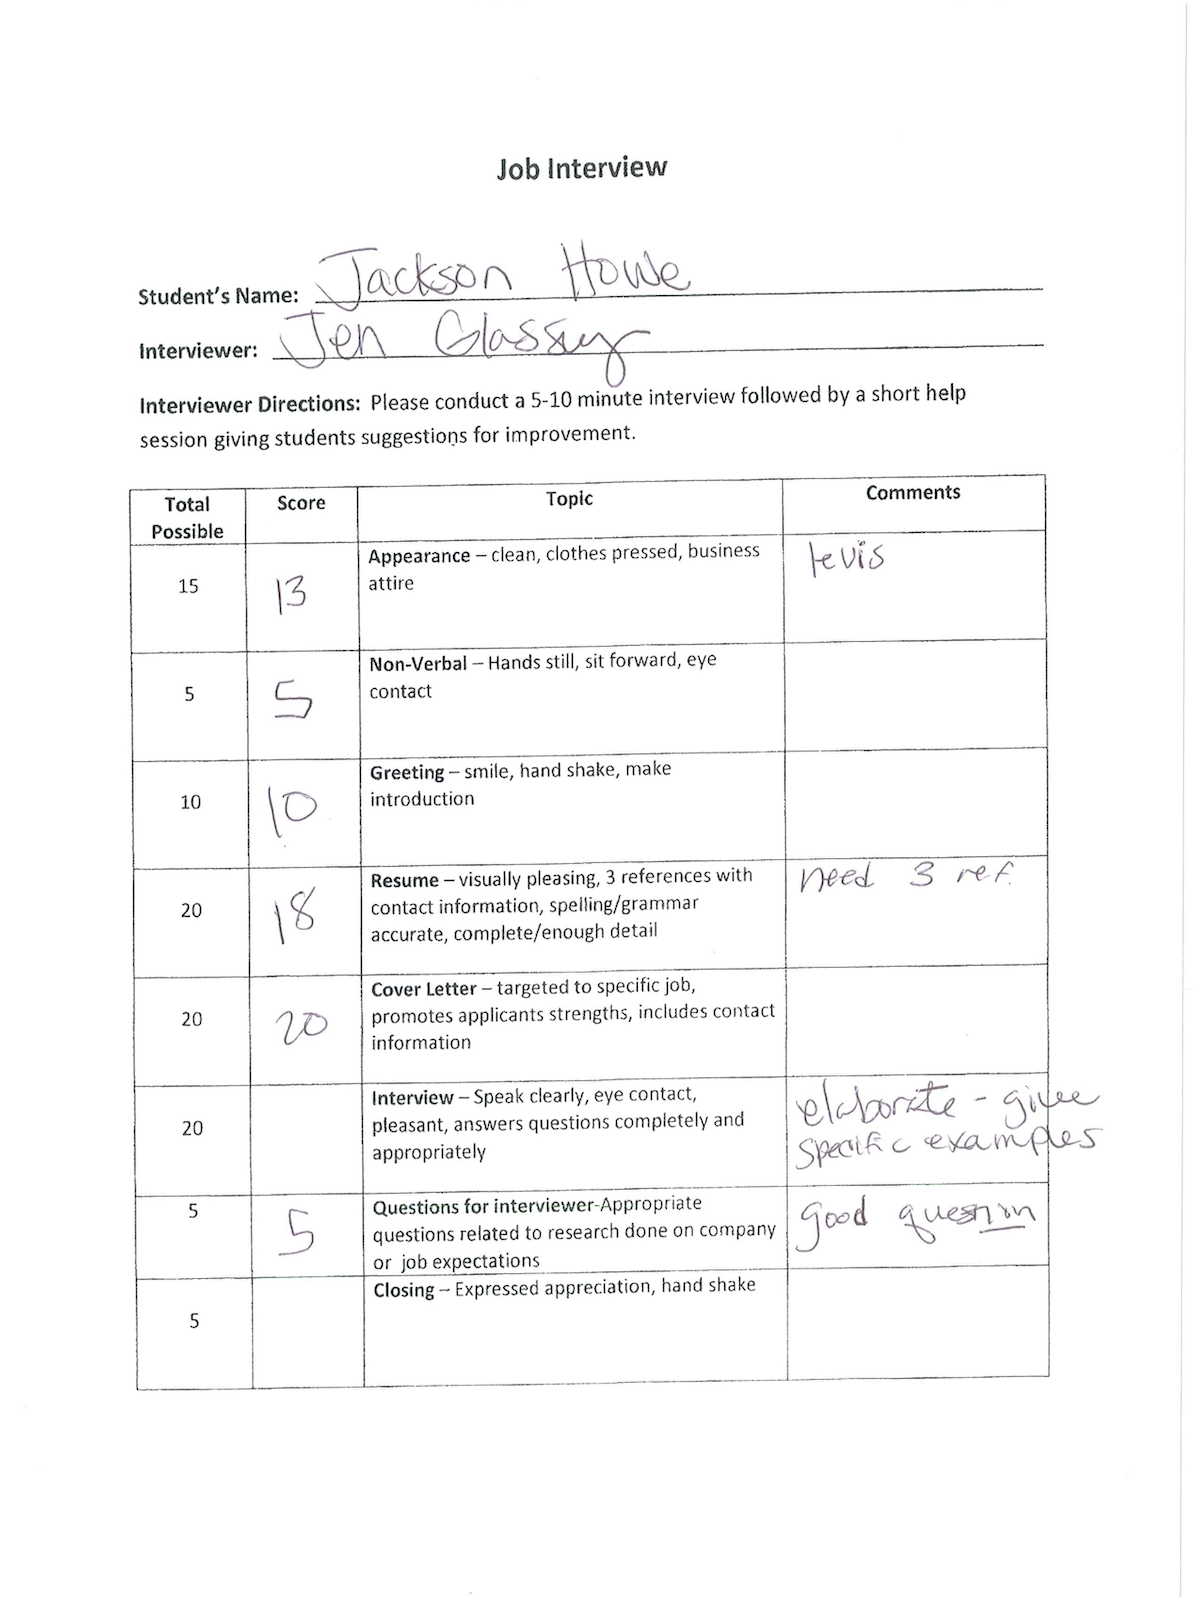 Job Interview
Student's Name: Jackson Howe
Interviewer: Jen Glassey
Interviewer Directions: Please conduct a 5-10 minute interview followed by a short help
session giving students suggestions for improvement.
Total Possible Score Topic Comments
15 13 Appearance – clean, clothes pressed, business levis
attire
5 5 Non-Verbal – Hands still, sit forward, eye
contact
10 10 Greeting – smile, hand shake, make
introduction
20 18 Resume – visually pleasing, 3 references with need 3 ref.
contact information, spelling/grammar
accurate, complete/enough detail
20 20 Cover Letter – targeted to specific job,
promotes applicants strengths, includes contact
information
20 Interview – Speak clearly, eye contact, elaborate - give
pleasant, answers questions completely and specific examples
appropriately
5 5 Questions for interviewer-Appropriate good question
questions related to research done on company
or job expectations
5 Closing – Expressed appreciation, hand shake